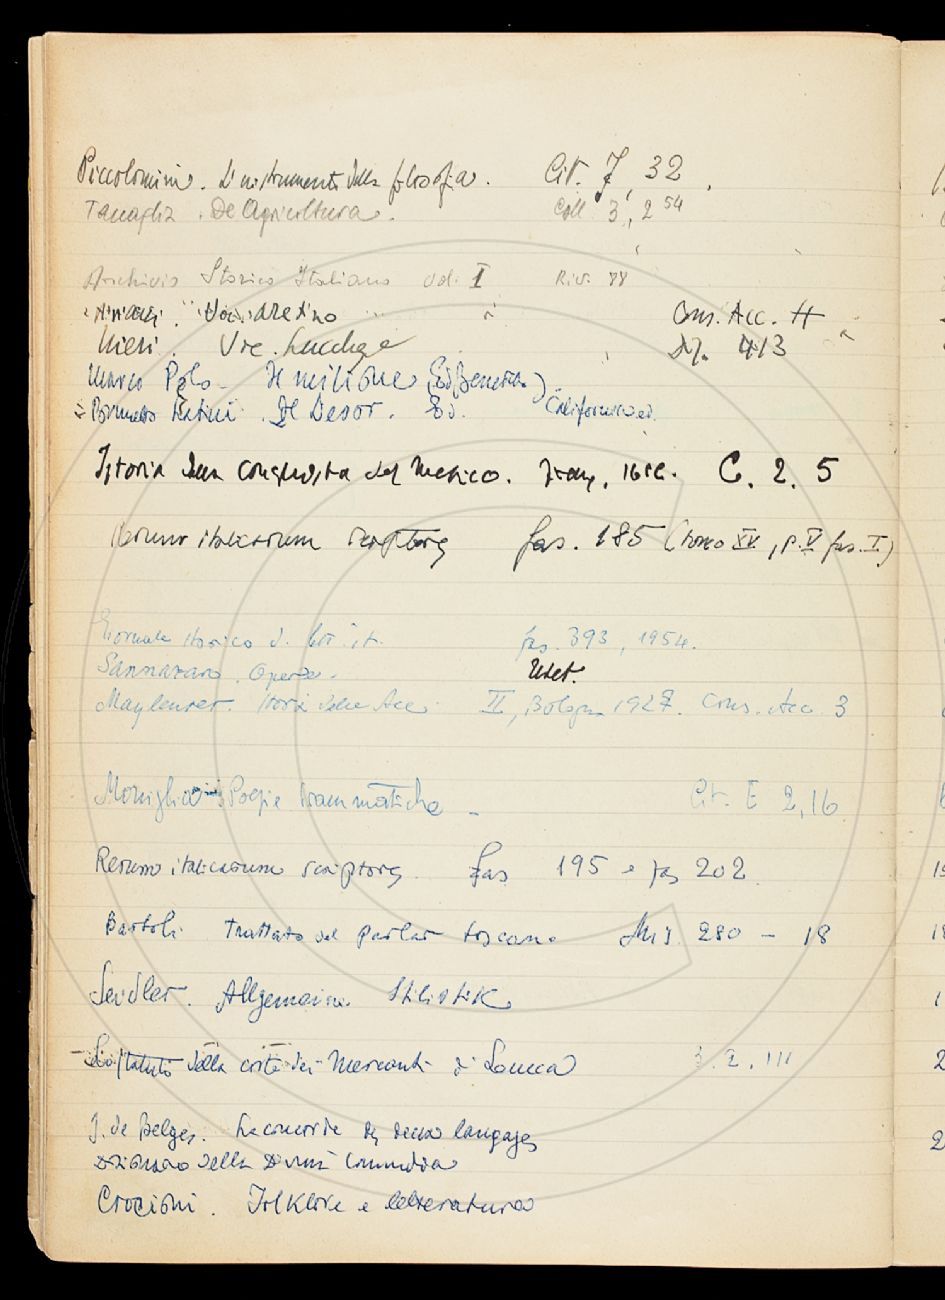 Piccolomini. L'instrumento della filosofia. Cit. 7, 32
Tanaglia. De Agricoltura. Coll. 3, 2 54
Archivio Storico Italiano vol. I Riv. 88
Voc. aretino Cons. Acc. H
Nieri. Voc. Lucchese Diz. 413
Marco Polo - Il milione (Ed. Benedetto)
Brunetto Latini. Il Tesor. Ed. California ed.
Istoria della conquista del Messico. C. 2. 5
Rerum italicarum scriptores fas. 185 (tomo XV, p. V fas. I)
Giornale storico d. lett. it. fas. 393, 1954.
Sannazaro. Opere. Utet.
Maylender. Storia delle Acc. II, Bologna 1927. Cons. Acc. 3
Moniglia Poesie drammatiche - Cit. E 2, 16
Rerum italicarum scriptores. fas 195 e fas 202
Bartoli Trattato del parlar toscano Mis. 280 - 18
Seidler. Allgemeine Stilistik
Lo Statuto della corte dei Mercanti di Lucca 3. 2. 111
J. de Belges. La concorde des deux langages
Dizionario della Divina Commedia
Crocioni. Folklore e letteratura